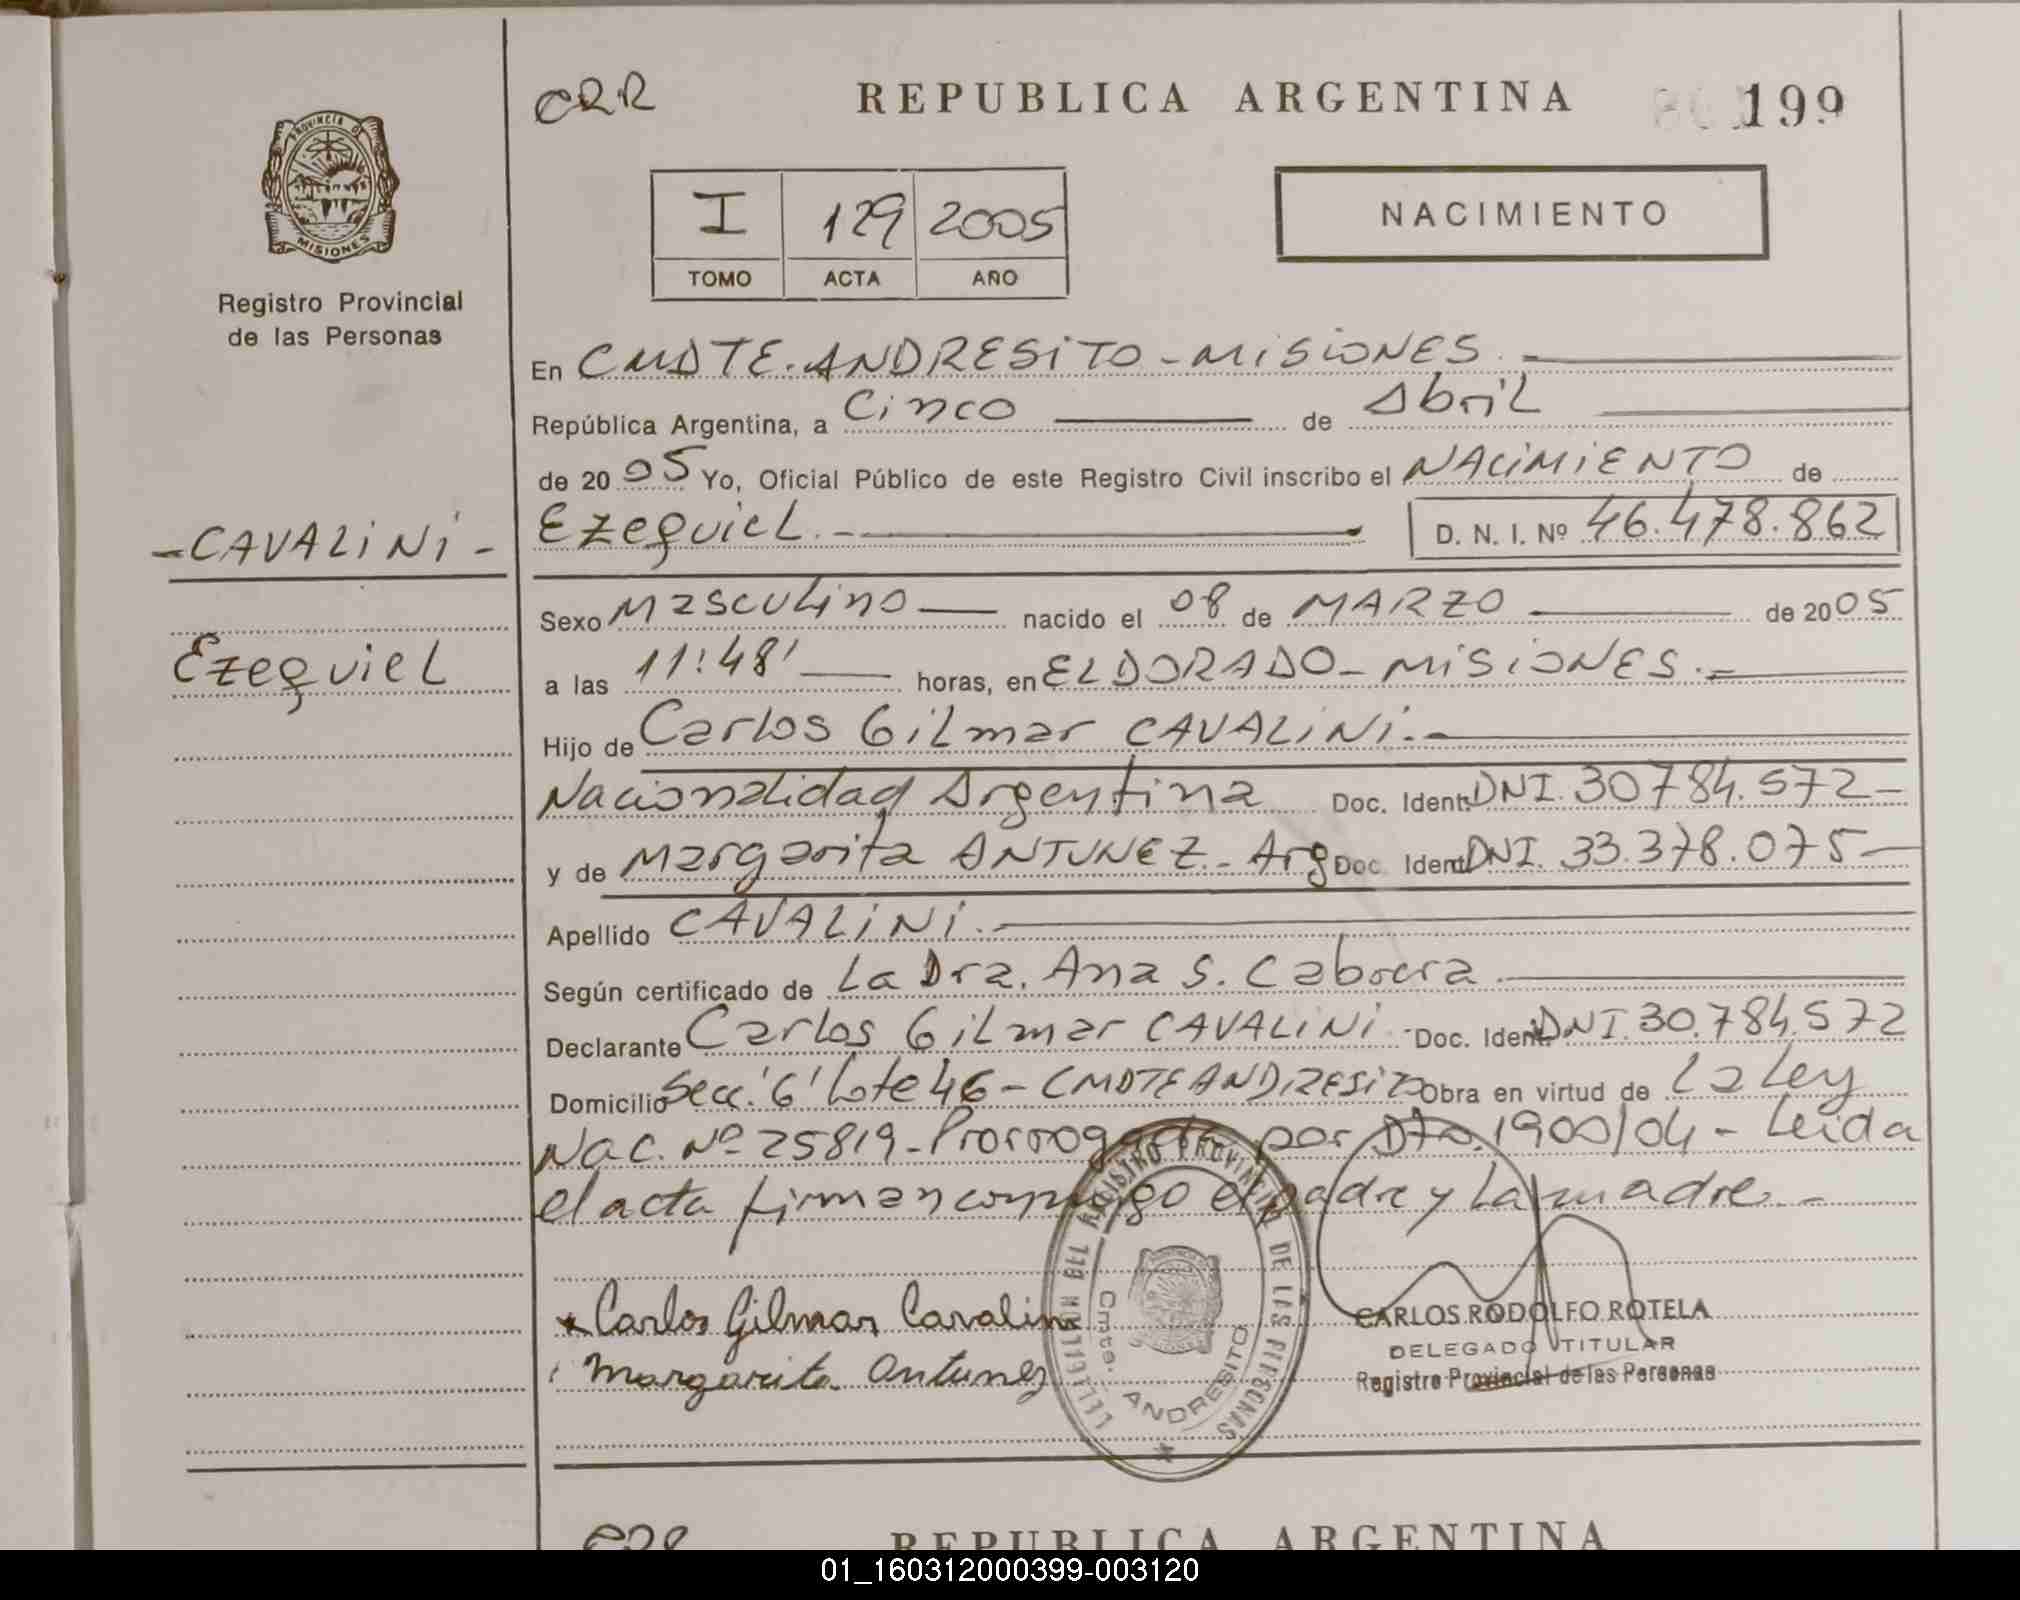 CRR REPUBLICA ARGENTINA 199
PROVINCIA DE MISIONES
Registro Provincial
de las Personas
I 129 2005
TOMO ACTA AÑO
NACIMIENTO
En CMDTE. ANDRESITO - MISIONES.
República Argentina, a Cinco de Abril
de 2005 Yo, Oficial Público de este Registro Civil inscribo el NACIMIENTO de
- CAVALINI -
Ezequiel. - D. N. I. Nº 46.478.862
Sexo Masculino nacido el 08 de MARZO de 2005
Ezequiel
a las 11:48' horas, en ELDORADO - MISIONES. -
Hijo de Carlos Gilmar CAVALINI. -
Nacionalidad Argentina Doc. Ident. DNI. 30.784.572 -
y de Margarita ANTUNEZ - Arg Doc. Ident. DNI. 33.378.075 -
Apellido CAVALINI. -
Según certificado de La Dra. Ana S. Cabrera
Declarante Carlos Gilmar CAVALINI - Doc. Ident. DNI. 30.784.572
Domicilio Secc. '6' Lote 46 - CMDTE ANDRESITO Obra en virtud de La Ley
Nac. Nº 25819 - Prorrogada por Dto. 1900/04 - Leida
el acta firman conmigo el padre y La madre. -
Carlos Gilmar Cavalini
Margarita Antunez
REGISTRO PROVINCIAL DE LAS PERSONAS
Cmte. ANDRESITO
CARLOS RODOLFO ROTELA
DELEGADO TITULAR
Registro Provincial de las Personas
REPUBLICA ARGENTINA
01_160312000399-003120